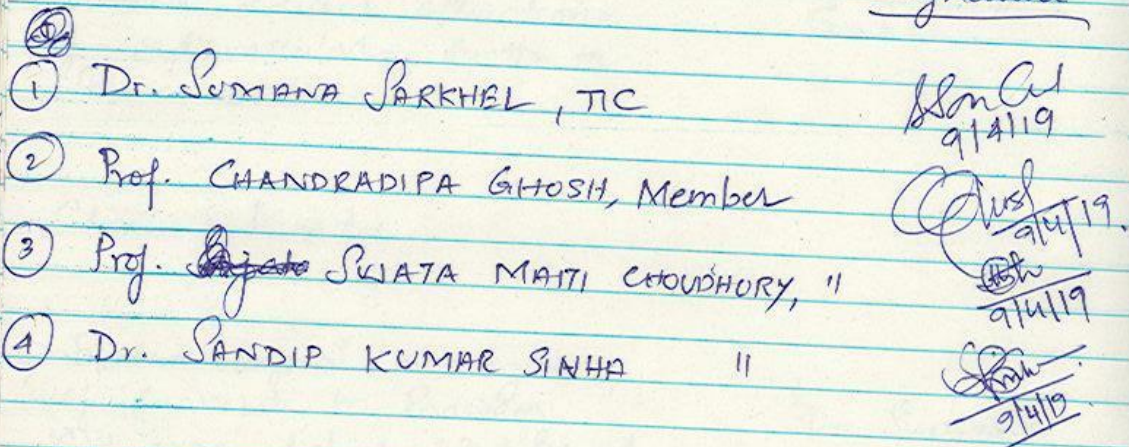 ① Dr. SUMANA SARKHEL, TIC
9/4/19
② Prof. CHANDRADIPA GHOSH, Member
9/4/19.
③ Prof. SUJATA MAITI CHOUDHURY, "
9/4/19
④ Dr. SANDIP KUMAR SINHA "
9/4/19.